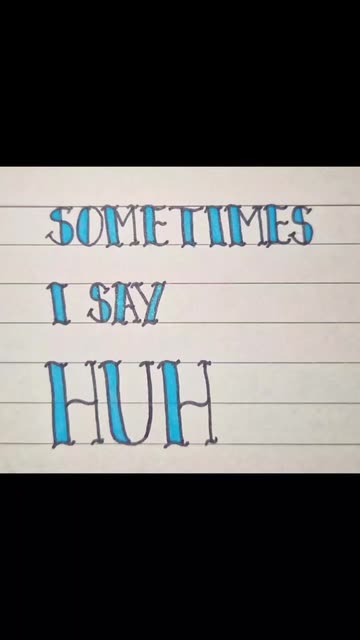 SOMETIMES
I SAY
HUH